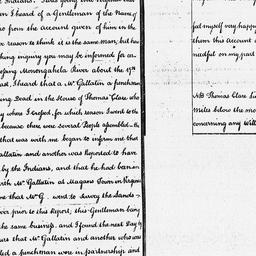 on I heard of a Gentleman of the Name of
from the account given of him in the
reason to think it is the same man, but how
king inquiry you may be informed for an
Monongahela River about the 17th
I heard that a Mr Gallatin a punchman
ing Dead in the House of Thomas Clare who
where I crossed, for which reason I went to the
because there were several People assembled. A
that was with me began to inform me that
allatin and another was Reported to have
by the Indians, and that he had been in
with Mr Gallatin at Magans Town in Virginia
me that Mr G. went to Survey the Lands
ver prior to this Report; this Gentleman being
the same business, and I found the next Day by
urs that Mr Gallatin and another who was
led a punchman were in partnership and
fed myself very happy
than this Account
needful on my part
NB Thomas Clare li
miles below the mo
concerning any Will